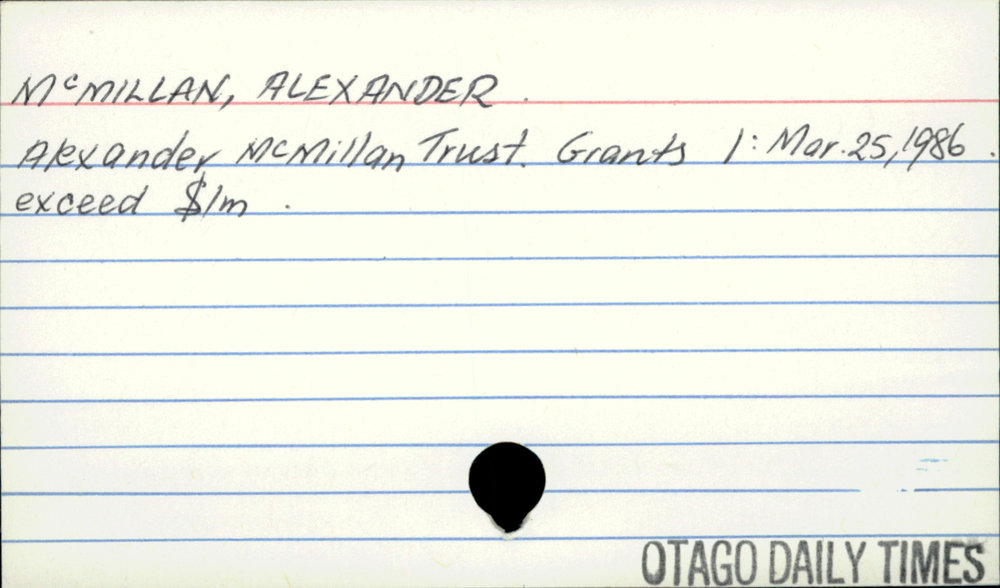 McMILLAN, ALEXANDER.
Alexander McMillan Trust. Grants 1: Mar. 25, 1986.
exceed $1m.
OTAGO DAILY TIMES